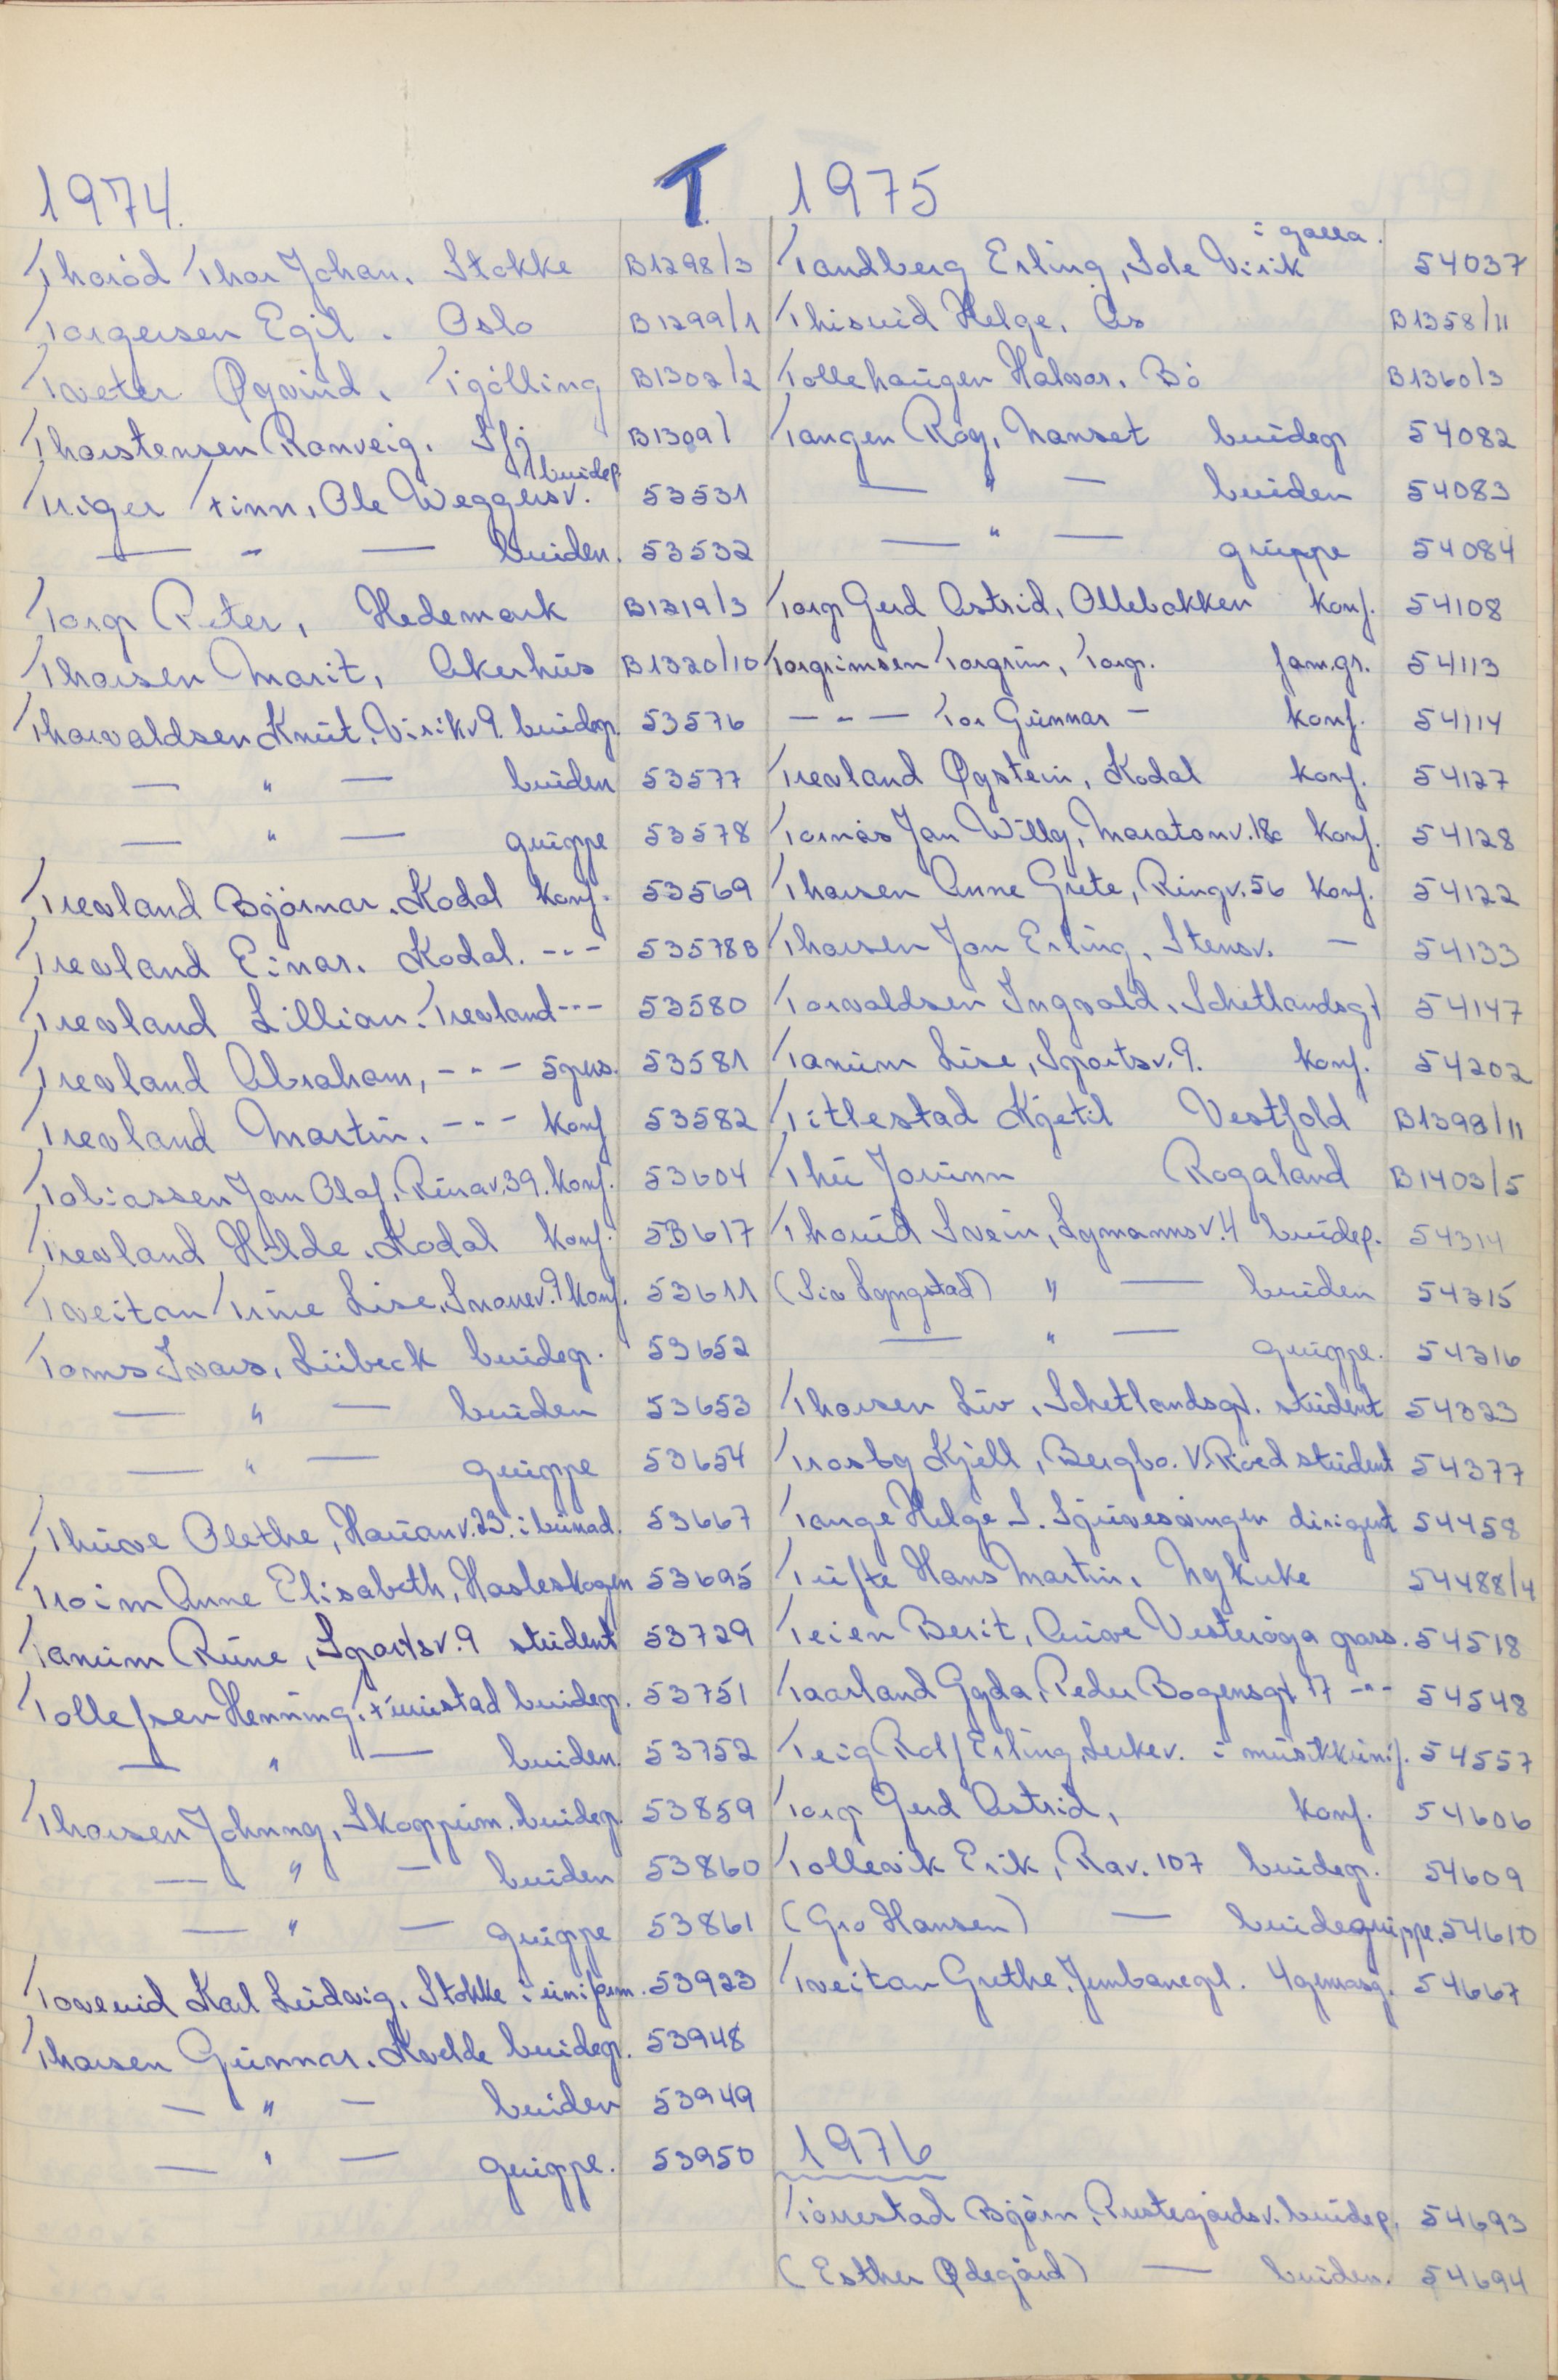 T.
1974.
Thoród Thor Johan. Stokke B1298/3
Torgersen Egil. Oslo B1299/1
Tveter Øyvind. Tjølling B1302/2
Thorstensen Ranveig. Sfj B1309/
Triger Finn, Ole Weggersv. brudep. 53531
— " — bruden. 53532
Torp Peter, Hedemark B1319/3
Thorsen Marit, Akerhus B1320/10
Thorvaldsen Knut, Virikv 9. brudep. 53576
— " — bruden 53577
— " — gruppe 53578
Trevland Bjørnar. Kodal konf. 53569
Trevland Einar. Kodal. -"- 53578B
Trevland Lillian. Trevland -"- 53580
Trevland Abraham, -"- 5 pers. 53581
Trevland Martin. -"- konf 53582
Tobiassen Jan Olaf, Runav. 39. konf. 53604
Trevland Hilde. Kodal konf. 53617
Tveitan Trine Lise, Snorrev. 9 konf. 53611
Toms Ivars, Lübeck brudep. 53652
— " — bruden 53653
— " — gruppe 53654
Thuve Olethe, Hauanv. 23. i bunad. 53667
Troim Anne Elisabeth, Hasleskogen 53695
Tanum Rune, Sportsv. 9 student 53729
Tollefsen Henning, Furustad brudep. 53751
— " — bruden. 53752
Thorsen Johnny, Skoppum. brudep. 53859
— " — bruden 53860
— " — gruppe 53861
Toverud Karl Ludvig, Stokke i uniform. 53923
Thorsen Gunnar. Kvelde brudep. 53948
— " — bruden 53949
— " — gruppe. 53950
1975
Tandberg Erling, Sole Virik i galla. 54037
Thisrud Helge. Ås B1358/11
Tollehaugen Halvor. Bø B1360/3
Tangen Roy, Nanset brudep 54082
— " — bruden 54083
— " — gruppe 54084
Torp Gerd Astrid, Ollebakken konf. 54108
Torgrimsen Torgrim, Torp. fam.gr. 54113
-"- Tor Gunnar - konf. 54114
Trevland Øystein, Kodal konf. 54127
Tornås Jan Willy, Maratonv. 18c konf. 54128
Thorsen Anne Grete, Ringv. 56 konf. 54122
Thorsen Jan Erling, Stensv. — 54133
Torvaldsen Ingvald, Schetlandsgt 54147
Tanum Lise, Sportsv. 9. konf. 54202
Titlestad Kjetil Vestfold B1398/11
Thu Jorunn Rogaland B1403/5
Thorud Svein, Lymannsv. 4 brudep. 54314
(Siv Lyngstad) " — bruden 54315
— " — gruppe. 54316
Thorsen Liv, Schetlandsgt. student 54323
Trosby Kjell, Bergbo. V. Råed student 54377
Tange Helge S. Sjuvesvingen dirigent 54458
Tufte Hans Martin, Nykirke 54488/4
Teien Berit, Auve Vesterøya pass. 54518
Taarland Gyda, Peder Bogensgt 17 -"- 54548
Teig Rolf Erling, Leikev. i musikkunif. 54557
Torp Gerd Astrid, konf. 54606
Tollevik Erik, Rav. 107 brudep. 54609
(Gro Hansen) — brudegruppe. 54610
Tveitan Grethe, Jernbanegt. 4 generasj. 54667
1976
Tørrestad Bjørn, Prestegårdsv. brudep. 54693
(Esther Ødegård) — bruden. 54694